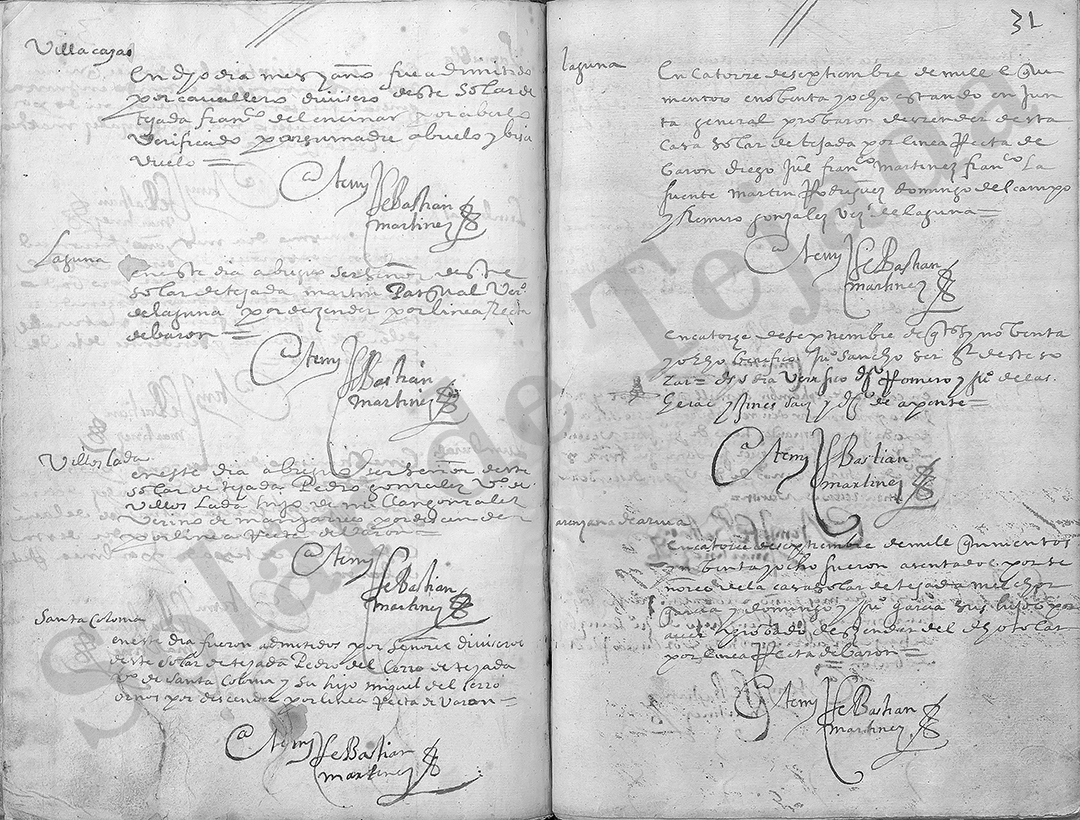 Villacajas
En dho dia mes y año fue admitido
por cavallero divisero deste Solar de
tejada fran.co del encinar por aberlo
verificado por su madre abuelo y bisa
buelo
Ante mj Sebastian
martinez
Laguna
en este dia aberiguo ser señor deste
Solar de tejada martin Pasqual Vez.o
de laguna por dezender por linea Recta
de baron
Ante mj Sebastian
martinez
Villoslada
en este dia aberiguo ser señor deste
Solar de tejada Pedro gonzalez Vz.o de
Villoslada hijo de millan gonzalez
Vezino de por descender
por linea Recta de baron
Ante mj Sebastian
martinez
Santa Coloma
en este dia fueron admitidos por Señores diviseros
deste Solar de tejada Pedro del Cerro de tejada
Vz.o de Santa Coloma y su hijo miguel del Cerro
por descender por linea Recta de Varon
Ante mj Sebastian
martinez
31
laguna
En Catorze de septiembre de mill e quin
nientos e nobenta y ocho estando en Jun
ta general probaron descender desta
Casa Solar de tejada por linea Recta de
baron diego fran.co Martinez fran.co La
fuente Martin Rodriguez domingo del campo
y Remiro gonzalez Vez.s de laguna
Ante mj Sebastian
martinez
en catorze de septiembre de y nobenta
y ocho berifico Ju.o Sancho ser deste so
lar dho dia Verifico Romero y Ju.o de las
heras y de aponte
Ante mj Sebastian
martinez
arenzana de arriva
en catorze de septiembre de mill quinientos
y nobenta y ocho fueron asentados por se
ñores de la casa solar de tejada melchor
garcia y domingo y Ju.o garcia sus hijos por
aver probado descendar del dho solar
por linea Recta de baron
Ante mj Sebastian
martinez
Solar de Tejada